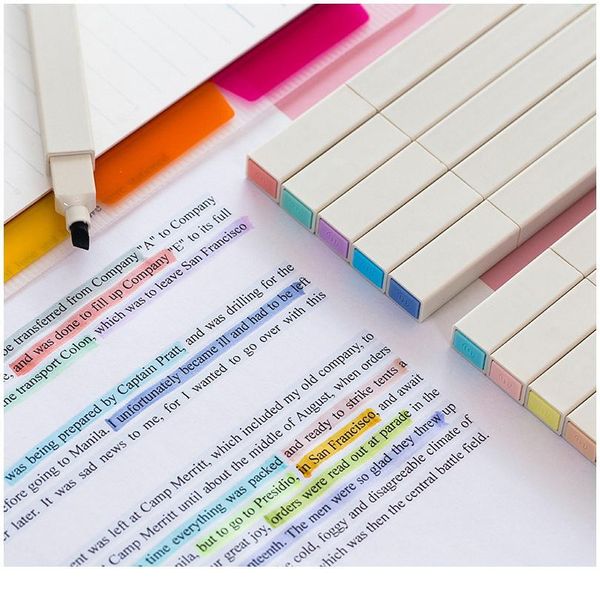 be transferred from Company "A" to Company
, and was done to fill up Company "E" to its full
ne transport Colon, which was to leave San Francisco
was being prepared by Captain Pratt, and was drilling for the
efore going to Manila. I unfortunately became ill and had to be left
r later. It was sad news to me, for I wanted to go over with this
ment was left at Camp Merritt, which included my old company, to
Camp Merritt until about the middle of August, when orders
time everything was packed and ready to strike tents a
but to go to Presidio, in San Francisco, and await
ur great joy, orders were read out at parade in the
teenth. The men were so glad they threw up
e cold, foggy and disagreeable climate of
which was then the central battle field.